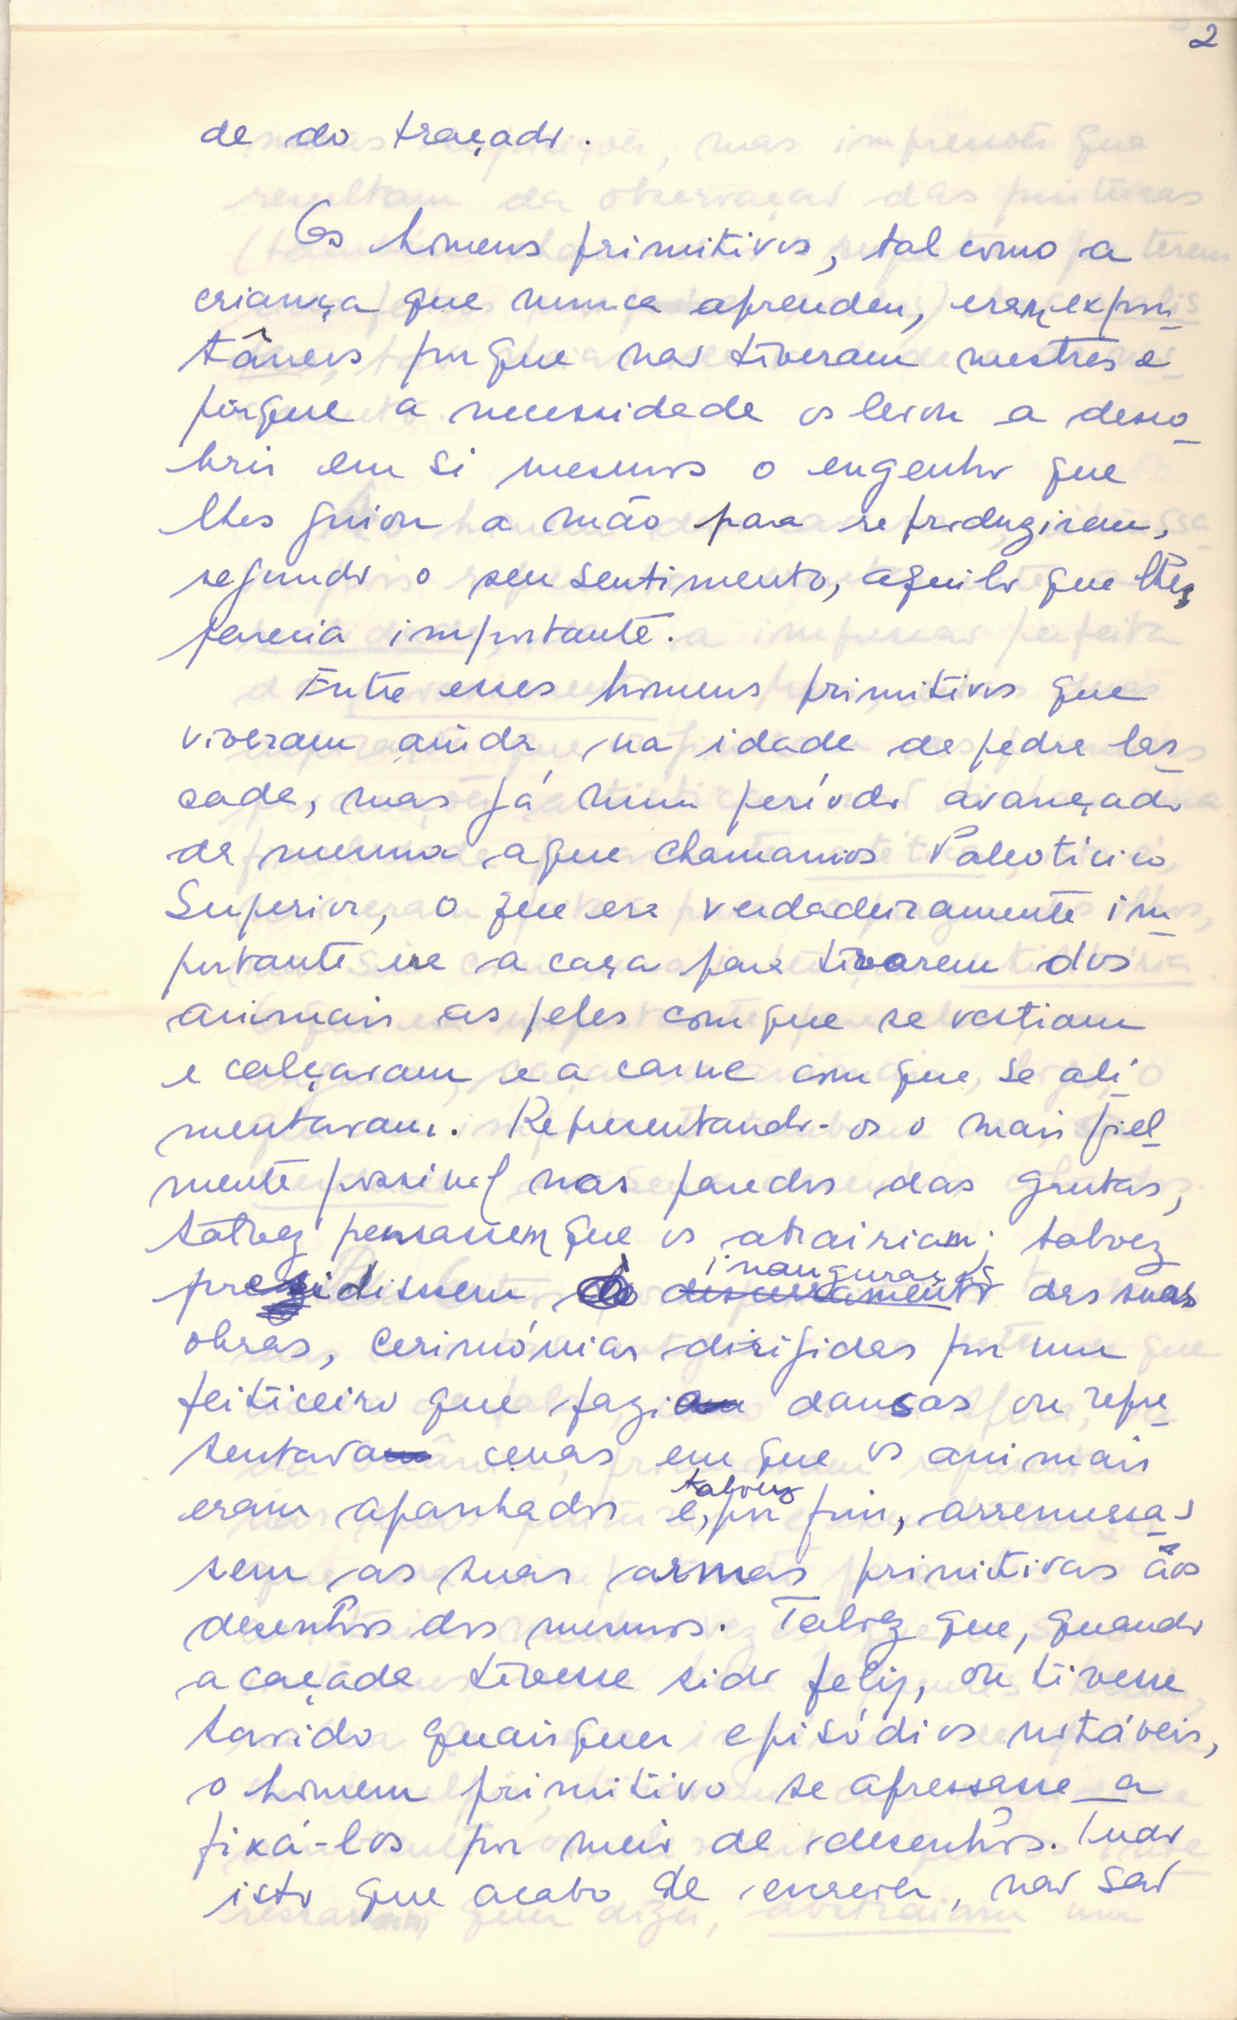 2
de do traçado.
Os homens primitivos, tal como a
criança que nunca aprendeu, eram expon_
tâneos porque não tiveram mestres e
porque a necessidade os levou a desco_
brir em si mesmos o engenho que
lhes guiou a mão para reproduzirem,
segundo o seu sentimento, aquilo que lhes
parecia importante.
Entre esses homens primitivos que
viveram ainda na idade da pedra las_
cada, mas já num período avançado
da mesma a que chamamos Paleotícico
Superior, o que era verdadeiramente im_
portante era a caça para tirarem dos
animais as peles com que se vestiam
e calçavam e a carne com que se ali_
mentavam. Representando-os o mais fiel_
mente possível nas paredes das grutas,
talvez pensassem que os atrairiam; talvez
presidissem à inauguração das suas
obras, cerimónias dirigidas por um
feiticeiro que fazia dansas ou repre_
sentava cenas em que os animais
eram apanhados e, talvez por fim, arremessas_
sem as suas armas primitivas aos
desenhos dos mesmos. Talvez que, quando
a caçada tivesse sido feliz, ou tivesse
havido quaisquer episódios notáveis,
o homem primitivo se apressasse a
fixá-los por meio de desenhos. Tudo
isto que acabo de escrever, não são